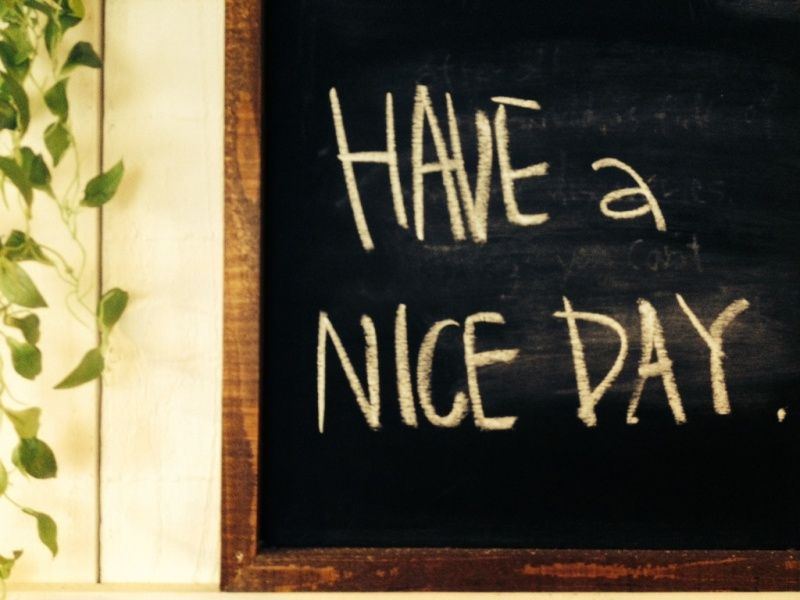 HAVE a
NICE DAY.